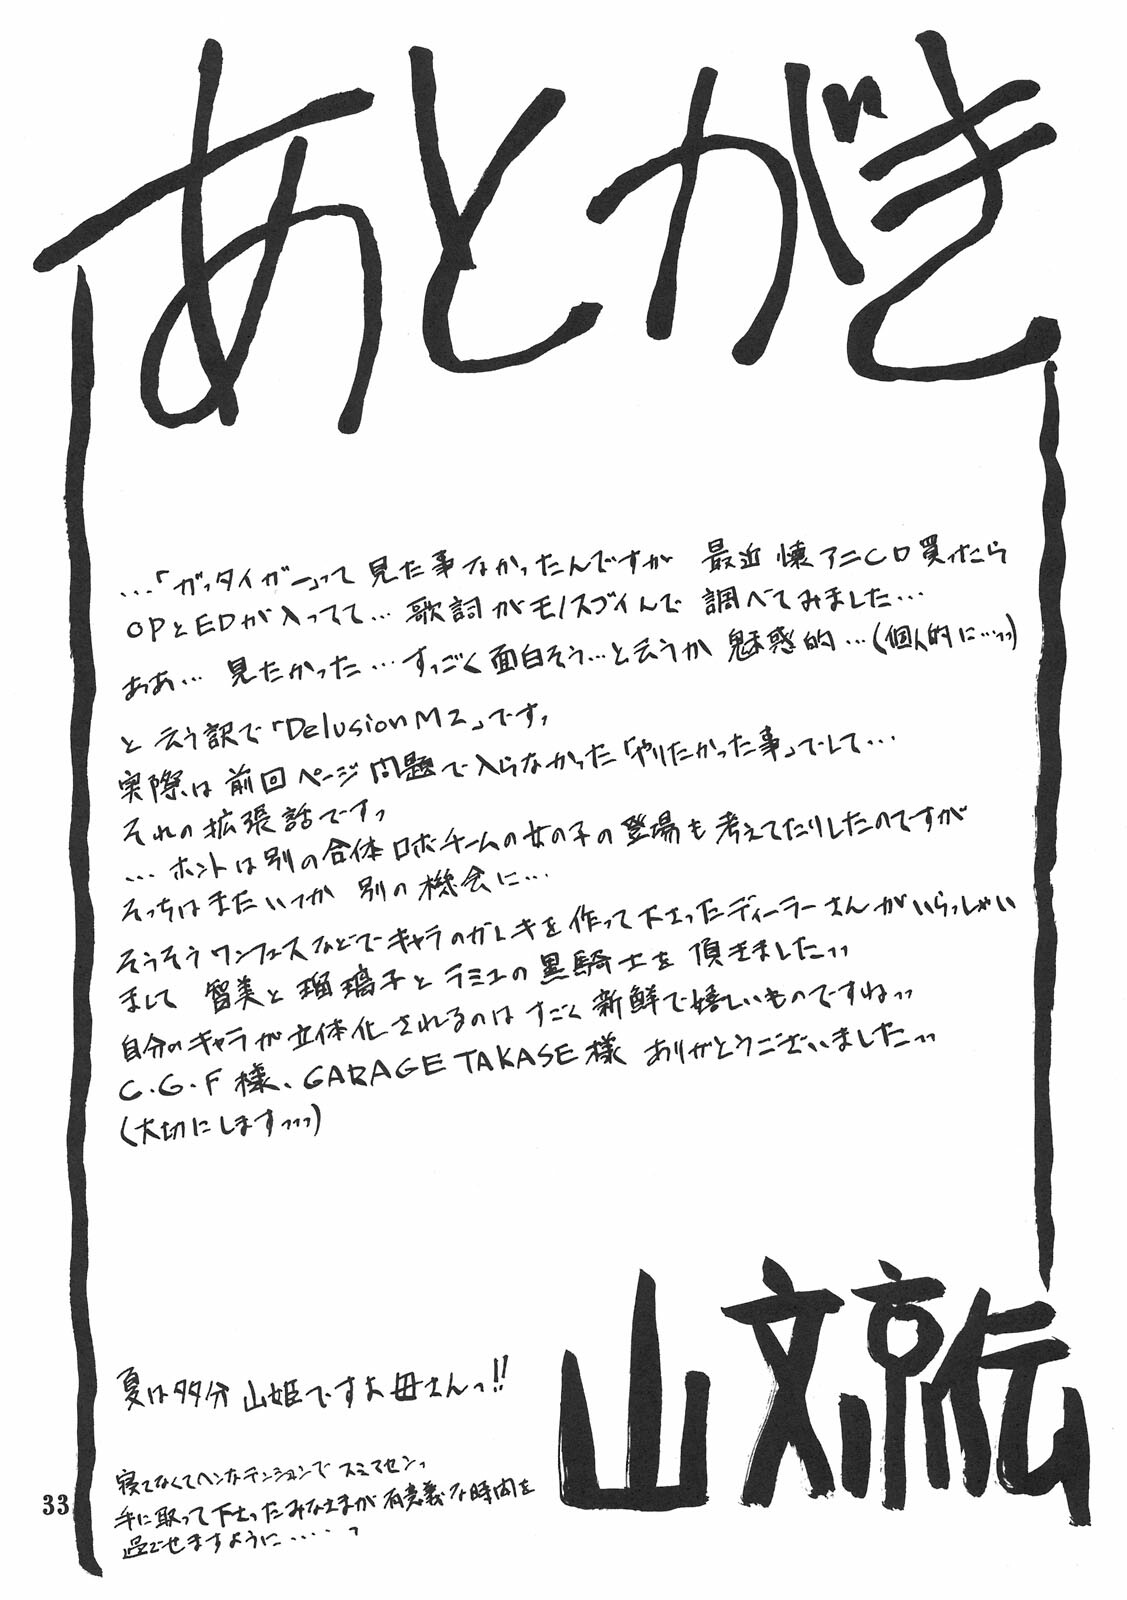 あとがき
…「ガッタイガー」って見た事なかったんですが 最近懐アニCD買ったら
OPとEDが入ってて…歌詞がモノスゴイんで調べてみました…
ああ… 見たかった…すっごく面白そう…と云うか魅惑的…(個人的に…っっ)
と云う訳で「Delusion M2」ですっ
実際は前回ページ問題で入らなかった「やりたかった事」でして…
それの拡張話ですっ
…ホントは別の合体ロボチームの女の子の登場も考えてたりしたのですが
そっちはまたいつか別の機会に…
そうそうワンフェスなどでキャラのガレキを作って下さったディーラーさんがいらっしゃい
まして 智美と瑠璃子とラミュの黒騎士を頂きましたっっ
自分のキャラが立体化されるのはすごく新鮮で嬉しいものですねっっ
C.G.F様、GARAGE TAKASE様 ありがとうございましたっっ
(大切にしますっっっ)
夏は多分山姫ですお母さんっ!!
山文京伝
寝てなくてヘンなテンションでスミマセンっ
手に取って下さったみなさまが有意義な時間を
過ごせますように・・・・っ
33